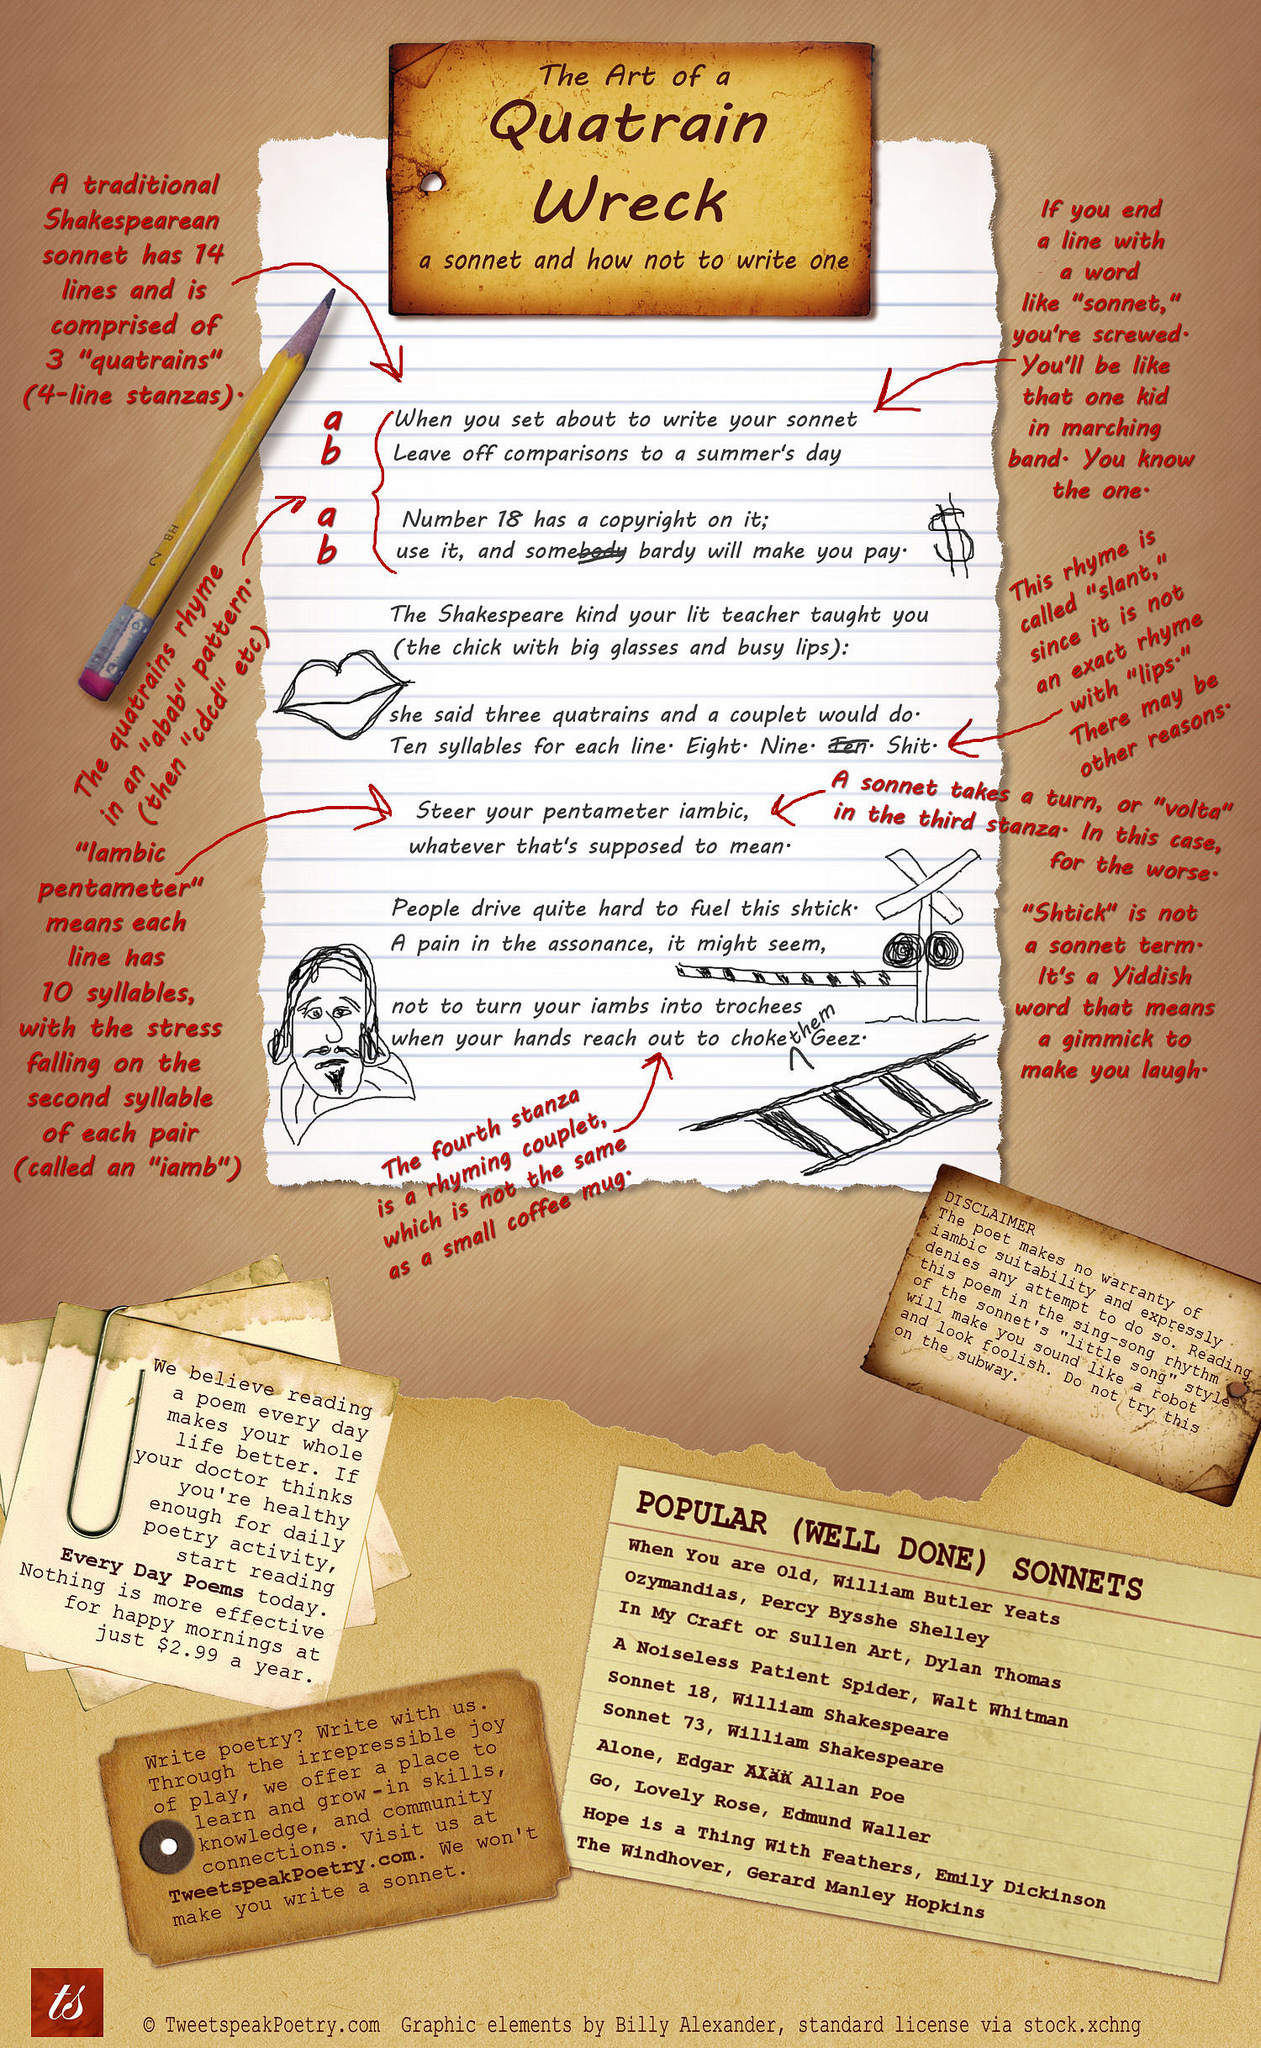 The Art of a
Quatrain
Wreck
a sonnet and how not to write one
A traditional
Shakespearean
sonnet has 14
lines and is
comprised of
3 "quatrains"
(4-line stanzas).
If you end
a line with
a word
like "sonnet,"
you're screwed.
You'll be like
that one kid
in marching
band. You know
the one.
a When you set about to write your sonnet
b Leave off comparisons to a summer's day
a Number 18 has a copyright on it;
b use it, and somebody bardy will make you pay.
$
HB 2
The quatrains rhyme
in an "abab" pattern.
(then "cdcd" etc)
The Shakespeare kind your lit teacher taught you
(the chick with big glasses and busy lips):
she said three quatrains and a couplet would do.
Ten syllables for each line. Eight. Nine. Ten. Shit.
This rhyme is
called "slant,"
since it is not
an exact rhyme
with "lips."
There may be
other reasons.
A sonnet takes a turn, or "volta"
in the third stanza. In this case,
for the worse.
Steer your pentameter iambic,
whatever that's supposed to mean.
"Iambic
pentameter"
means each
line has
10 syllables,
with the stress
falling on the
second syllable
of each pair
(called an "iamb")
People drive quite hard to fuel this shtick.
A pain in the assonance, it might seem,
"Shtick" is not
a sonnet term.
It's a Yiddish
word that means
a gimmick to
make you laugh.
not to turn your iambs into trochees
when your hands reach out to choke them Geez.
The fourth stanza
is a rhyming couplet,
which is not the same
as a small coffee mug.
DISCLAIMER
The poet makes no warranty of
iambic suitability and expressly
denies any attempt to do so. Reading
this poem in the sing-song rhythm
of the sonnet's "little song" style
will make you sound like a robot
and look foolish. Do not try this
on the subway.
We believe reading
a poem every day
makes your whole
life better. If
your doctor thinks
you're healthy
enough for daily
poetry activity,
start reading
Every Day Poems today.
Nothing is more effective
for happy mornings at
just $2.99 a year.
POPULAR (WELL DONE) SONNETS
When You are Old, William Butler Yeats
Ozymandias, Percy Bysshe Shelley
In My Craft or Sullen Art, Dylan Thomas
A Noiseless Patient Spider, Walt Whitman
Sonnet 18, William Shakespeare
Sonnet 73, William Shakespeare
Alone, Edgar Allan Poe
Go, Lovely Rose, Edmund Waller
Hope is a Thing With Feathers, Emily Dickinson
The Windhover, Gerard Manley Hopkins
Write poetry? Write with us.
Through the irrepressible joy
of play, we offer a place to
learn and grow-in skills,
knowledge, and community
connections. Visit us at
TweetspeakPoetry.com. We won't
make you write a sonnet.
ts
© TweetspeakPoetry.com Graphic elements by Billy Alexander, standard license via stock.xchng